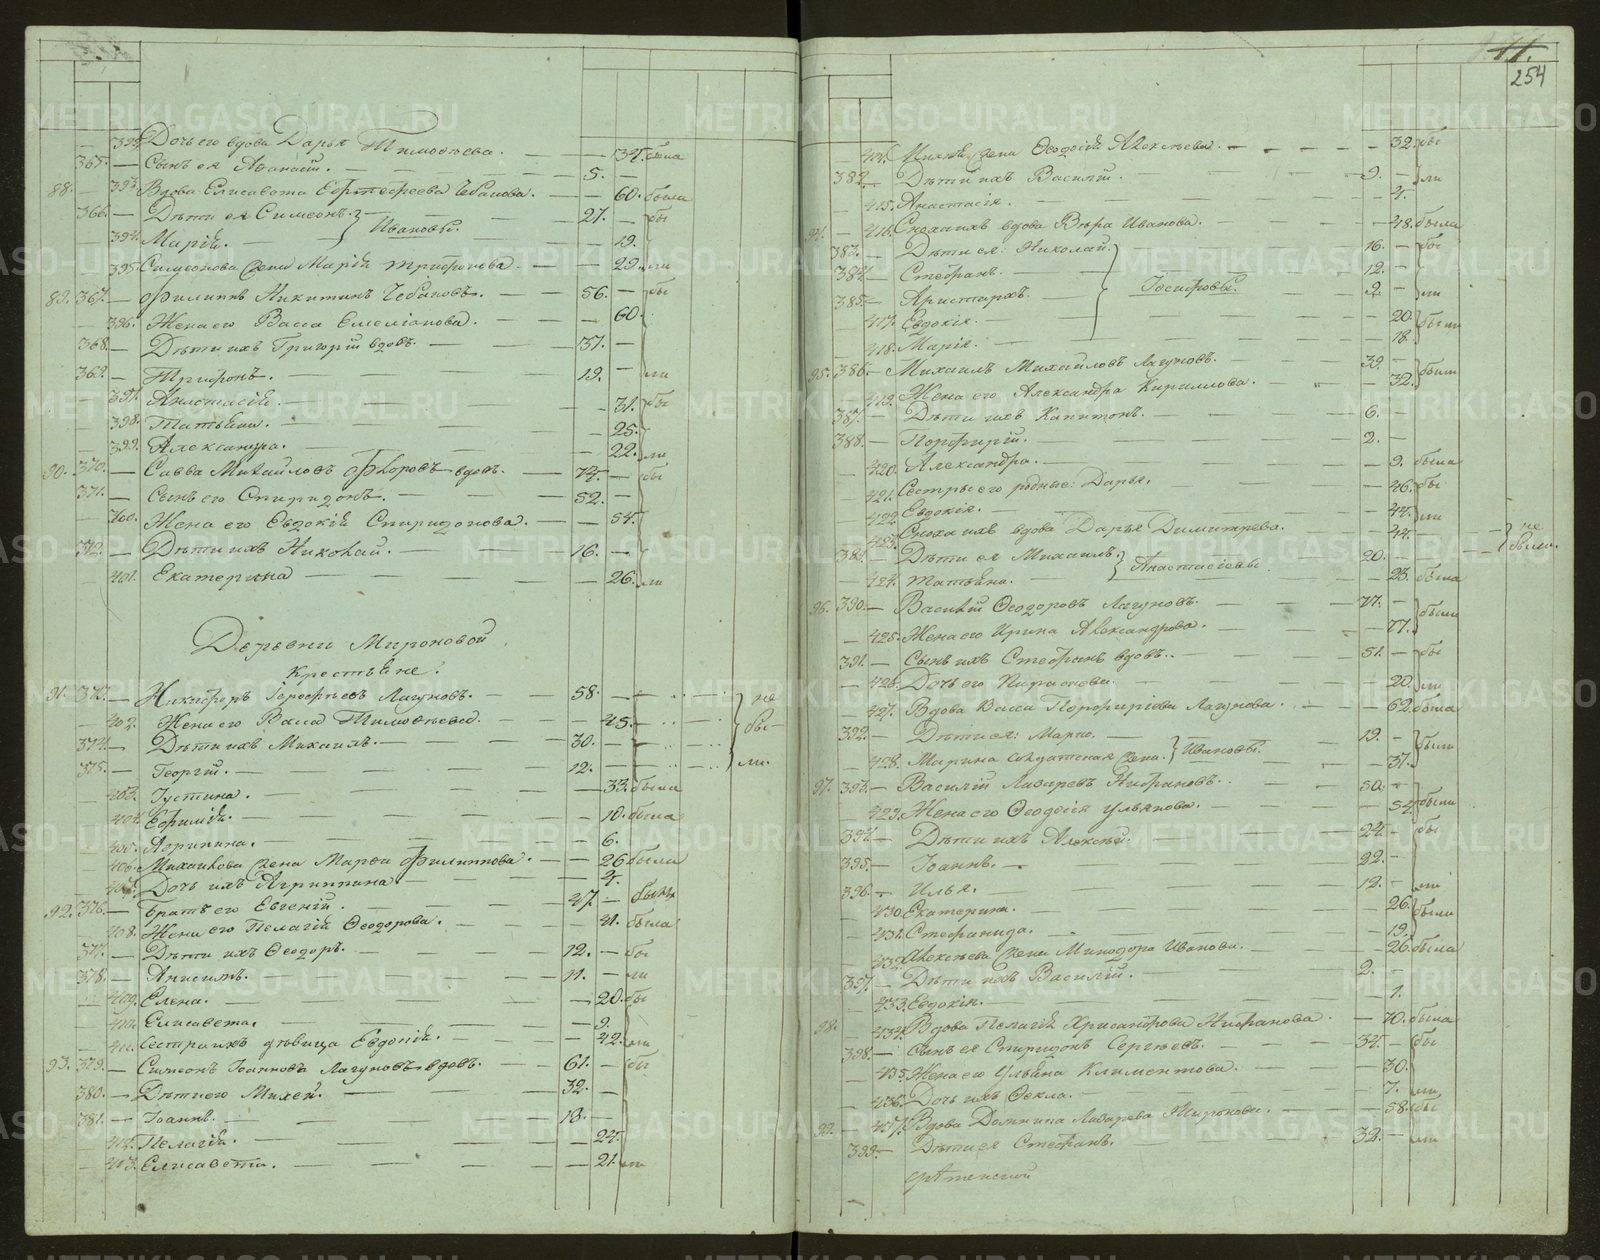 392. Дочь его вдова Дарья Тимоѳеева. — 34. была
365. — Сынъ ея Аѳанасій. — 5. —
88. — 393. Вдова Елисавета Ефтефеева Чебакова. — 60. была
366. — Дѣти ея Симеонъ. — 27. — бы
Ивановы.
394. Марія. — 19.
395. Симеонова жена Марія Трифонова — 29. ли
89. 367. — Филиппъ Никитинъ Чебаковъ. — 56. — бы
396. Жена его Васса Емеліанова. — 60.
368. — Дѣти ихъ Григорій вдовъ. — 37. —
369. — Трифонъ. — 19. — ли
397. Анастасія. — 31. бы
398. Татьяна. — 25.
399. Александра. — 22. ли
90. 370. — Савва Михайловъ Ѳлоровъ вдовъ. — 74. — бы
371. — Сынъ его Спиридонъ. — 52. —
400. Жена его Евдокія Спиридонова. — 54.
372. — Дѣти ихъ Николай. — 16. —
401. Екатерина — 26. ли
Деревни Мироновой
Крестьяне:
91. 373. — Никифоръ Іерофѣевъ Лагуновъ. — 58. — не
402. Жена его Васса Тимоѳеева. — 45. — бы
374. — Дѣти ихъ Михаилъ. — 30. —
375. — Георгій. — 12. — ли.
403. Іустина. — 33. была
404. Ефимія. — 10. была
405. Агрипина. — 6.
406. Михайлова жена Марѳа Филиппова. — 26 была
407. Дочь ихъ Агриппина — 4.
92. 376. — Братъ его Евгеній. — 47. — былъ
408. Жена его Пелагія Ѳеодорова. — 41. была
377. — Дѣти ихъ Ѳеодоръ. — 12. — бы
378. — Анисимъ. — 11. — ли
409. Елена. — 20. бы
410. Елисавета. — 9.
411. Сестра ихъ дѣвица Евдокія. — 42. ли
93. 379. — Симеонъ Іоанновъ Лагуновъ вдовъ. — 61. — бы
380. — Дѣти его Михей. — 32. —
381. — Іоаннъ. — 13. —
412. Пелагія. — 24.
413. Елисавета. — 21. ли
254
414. Михѣя жена Ѳеодосія Алексѣева. — 32. бы
382. — Дѣти ихъ Василій. — 9. — ли
415. Анастасія. — 4.
94. — 416. Сноха ихъ вдова Вѣра Иванова. — 48. была
383. — Дѣти ея: Николай. — 16. — бы
384. — Стефанъ. — 12. —
Іосифовы.
385. — Аристархъ. — 2. — ли
417. Евдокія. — 20. были
418. Марія. — 18.
95. 386. — Михаилъ Михайловъ Лагуновъ. — 39. — были
419. Жена его Александра Кириллова. — 32.
387. — Дѣти ихъ Капитонъ. — 6. —
388. — Порфирій. — 2. —
420. Александра. — 9. была
421. Сестры его родныя: Дарья. — 46. бы
422. Евдокія. — 44. ли
423. Сноха ихъ вдова Дарья Димитрева. — 44. — не
389. — Дѣти ея Михаилъ. — 20. — были.
Анастасіевы.
424. Татьяна. — 23. была
96. 390. — Василій Ѳеодоровъ Лагуновъ. — 77. — были
425. Жена его Ирина Александрова. — 77.
391. — Сынъ ихъ Стефанъ вдовъ. — 51. — бы
426. Дочь его Параскева. — 20. ли
427. Вдова Васса Порфиріева Лагунова. — 62. была
392. — Дѣти ея: Марко. — 19. — были
Ивановы.
428. Марина солдатская жена. — 37.
97. 393. — Василій Лазаревъ Нифановъ. — 50. — были
429. Жена его Ѳеодосія Ульянова. — 54.
394. — Дѣти ихъ Алексѣй. — 24. — бы
395. — Іоаннъ. — 22. —
396. — Илья. — 12. — ли
430. Екатерина. — 26. были
431. Стефанида. — 19.
432. Алексѣева жена Минодора Иванова. — 26. была
397. — Дѣти ихъ Василій. — 2. —
433. Евдокія. — 1.
98. 434. Вдова Пелагія Хрисанфова Нифанова. — 70. была
398. — Сынъ ея Спиридонъ Сергѣевъ. — 34. — бы
435. Жена его Ульяна Климентова. — 30.
436. Дочь ихъ Ѳекла. — 7. ли
99. 437. Вдова Домнина Лазарева Миронова. — 58. бы
399. — Дѣти ея Стефанъ. — 32. — ли
METRIKI.GASO-URAL.RU